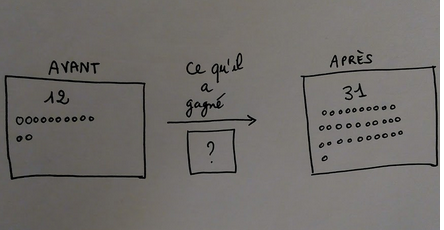 AVANT
12
Ce qu'il
a
gagné
?
APRÈS
31